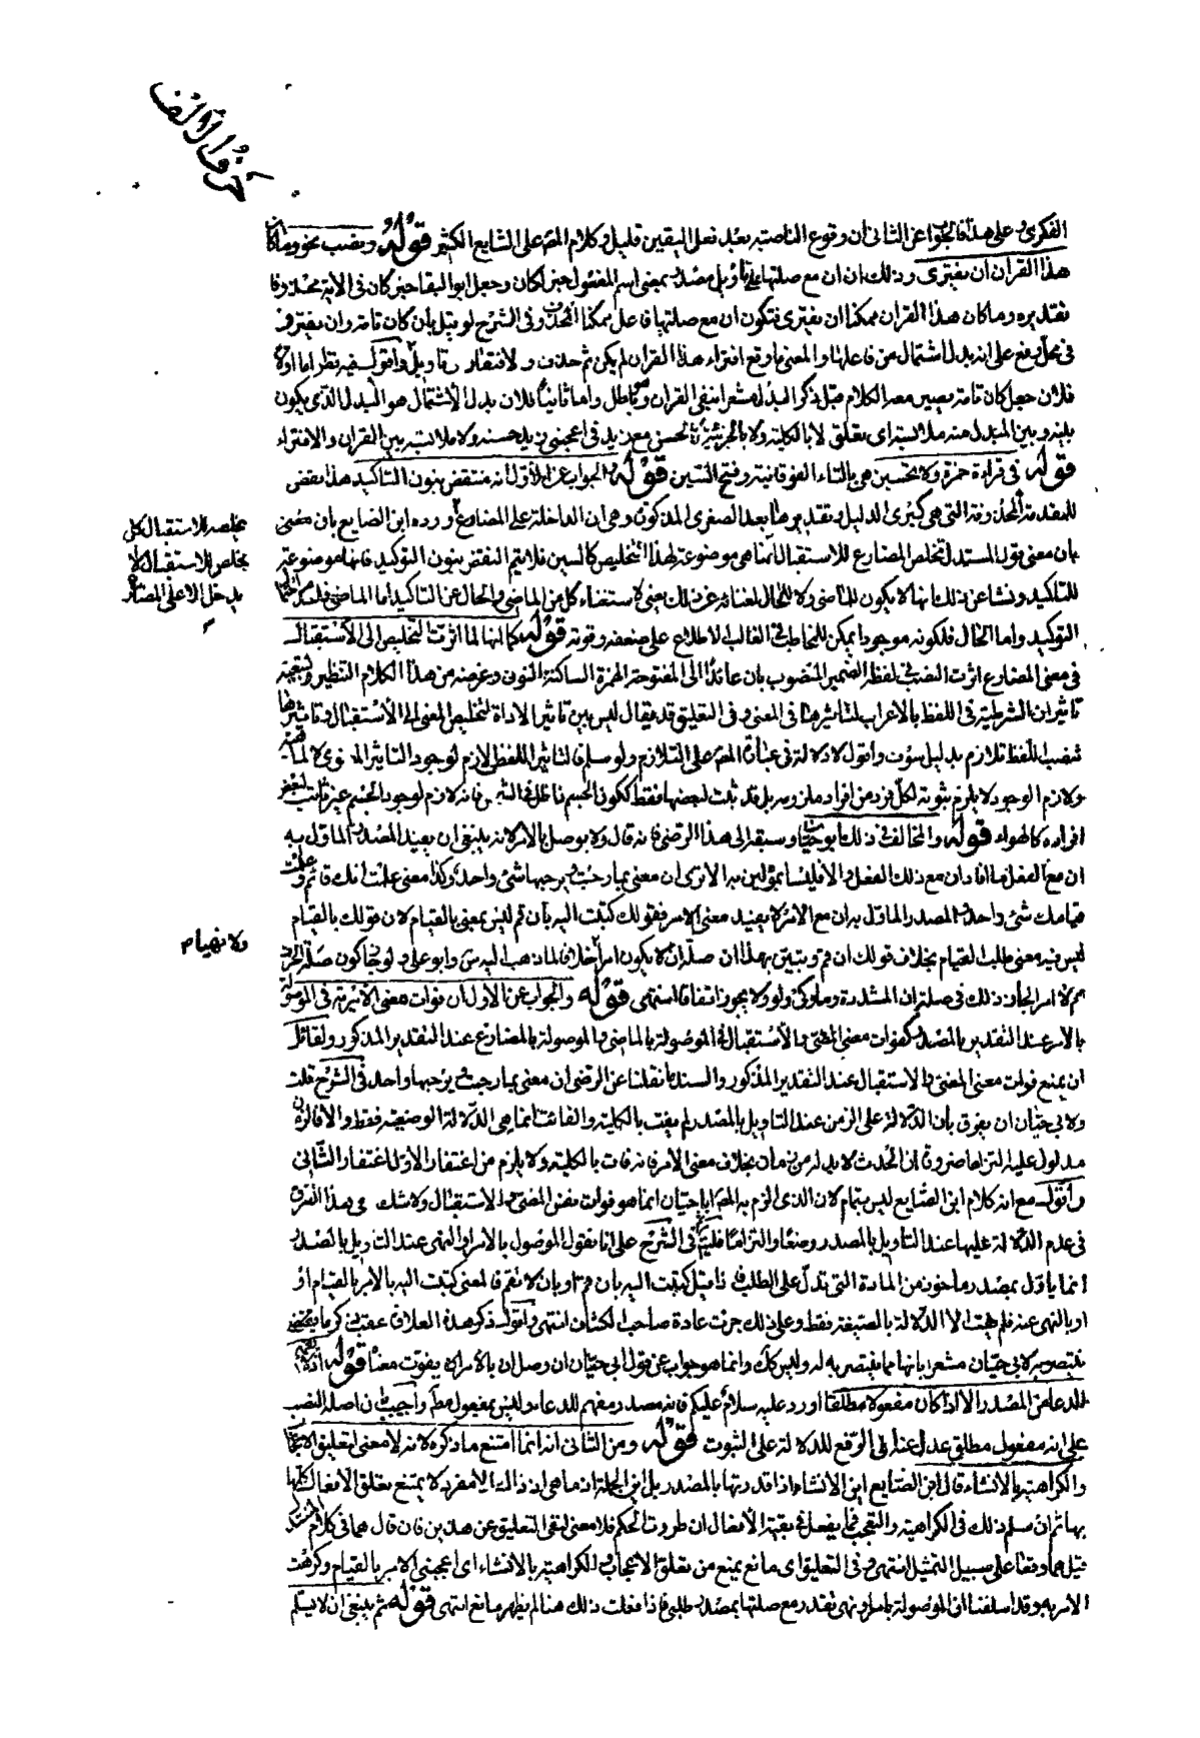 حرف الألف
الفكرى وعلى هذا فالجواب عن الثانى ان وقوع الناصبة بعد فعل اليقين قليل وكلام المص على الشايع الكثير قوله ونصب نحو وما كان
هذا القران ان يفترى وذلك ان ان مع صلتها على تاويل مصدر بمعنى اسم المفعول خبر لكان وجعل ابو البقا خبر كان فى الاية محذوفا
تقديره وما كان هذا القران ممكنا ان يفترى فتكون ان مع صلتها فاعل ممكنا المحذوف وفى الشرح لو قيل بان كان تامة وان يفترى
فى محل رفع على انه بدل اشتمال من فاعلها والمعنى ما وقع افتراء هذا القران لم يكن ثم حذف ولا افتقار تاويل واقول فيه نظر اما اولا
فلان جعل كان تامة يصير معه الكلام قبل ذكر البدل مشعرا بنفى القران وهو باطل واما ثانيا فلان بدل الاشتمال هو البدل الذى يكون
بينه وبين المبدل منه ملابسة اى تعلق لا بالكلية ولا بالجزئية كالحسن مع زيد فى اعجبنى زيد حسنه ولا ملابسة بين القران والافتراء
قوله فى قراءة حمزة ولا تحسبن هى بالتاء الفوقانية وفتح السين قوله والجواب عن الاول انه منتقض بنون التاكيد هذا نقض
للمقدمة المحذوفة التى هى كبرى الدليل وتقديرها بعد الصغرى المذكورة وهى ان الداخلة على المضارع ورده ابن الضايع بان معنى
بان معنى قول المستدل تخلص المضارع للاستقبال انما هى موضوعة لهذا التخليص كالسين فلا يتم النقض بنون التوكيد فانها موضوعة
للتاكيد ونشا عن ذلك انها لا يكون للماضى ولا للحال لغنائه عن ذلك يعنى لاستغناء كل من الماضى والحال عن التاكيد اما الماضى
التوكيد واما الحال فلكونه موجودا يمكن للمخاطب فى الغالب الاطلاع على ضعفه وقوته قوله كما انها لما اثرت التخليص الى الاستقبال
فى معنى المضارع اثرت النصب فى لفظه الضمير المنصوب بان عائد الى المفتوحة الهمزة الساكنة النون وغرضه من هذا الكلام التنظير
تاثير ان الشرطية فى اللفظ بالاعراب لتاثيرها فى المعنى وفى التعليق قد يقال ليس بين تاثير الاداة لتخليص المعنى الى الاستقبال وتاثيرها
نصب اللفظ تلازم بدليل سوف واقول لا دلالة فى عبارة المص على التلازم ولو سلم فالتاثير اللفظى لازم لوجود التاثير المعنوى لا لماهيته
ولازم الوجود لا يلزم ثبوته لكل فرد من افراد ملزومه بل قد ثبت لبعضها فقط ككون الجسم فانه لازم لوجود الجسم غير ثابت لبعض
افراده كالهواء قوله والمخالف فى ذلك ابو حيان وسبقه الى هذا الرضى فانه قال ولا يوصل بالامر لانه ينبغى ان يفيد المصدر الماول به
ان مع الفعل ما افاد ان مع ذلك الفعل والا فليسا بمؤلين به الا ترى ان معنى بما رحبت وبرحبها شى واحد وكذا معنى علمت انك قائم وعلمت
قيامك شى واحد والمصدر الماول به ان مع الامر لا يفيد معنى الامر فقولك كتبت اليه بان قم ليس بمعنى بالقيام لان قولك بالقيام
ليس فيه معنى طلب القيام بخلاف قولك ان قم وتبين بهذا ان صلة ان لا يكون امرا خلافا لما ذهب اليه س وابو على ولو جاز كون صلة الحرف
امرا لجاز ذلك فى صلة ان المشددة وما وكى ولو ولا يجوز اتفاقا انتهى قوله والجواب عن الاول ان فوات معنى الامرية فى الموصولة
بالامر عند التقدير بالمصدر كفوات معنى المضى والاستقبال فى الموصولة بالماضى والموصولة بالمضارع عند التقدير المذكور ولقائل
ان يمنع فوات معنى المضى والاستقبال عند التقدير المذكور والسند ما نقلنا عن الرضى ان معنى بما رحبت وبرحبها واحد فى الشرح قلت
ولابى حيان ان يفرق بان الدلالة على الزمن عند التاويل بالمصدر لم يفت بالكلية والفائت انما هى الدلالة الوضعية فقط والا فالزمن
مدلول عليه التزاما ضرورة ان الحدث لا بد له من زمان بخلاف معنى الامر فانه فات بالكلية ولا يلزم من اغتفار الاول اغتفار الثانى
واقول مع انه كلام ابن الضايع ليس بتمام لان الذى الزم به المص ابا حيان انما هو فوات معنى المضى والاستقبال ولا شك فى هذا الفرق
فى عدم الدلالة عليها عند التاويل بالمصدر وضعا والتزاما فى الشرح على انا نقول الموصول بالامر او النهى عند التاويل بالمصدر
انما ياول بمصدر ماخوذ من المادة التى تدل على الطلب فاذا قيل كتبت اليه بان قم او بان لا تقم فالمعنى كتبت اليه بالامر بالقيام او
او بالنهى عنه فلم يفت الا الدلالة بالصيغة فقط وعلى ذلك جرت عادة صاحب الكشاف انتهى واقول ذكر هذه العلاوة عقب
بتصويره لابى حيان مشعر بانها مما ينتصر به له وليس كذلك وانما هو جواب عن قول ابى حيان ان وصل ان بالامر يفوت معناه قوله
الدعا من المصدر الا اذا كان مفعولا مطلقا اورد عليه سلام عليكم فانه مصدر مفهم للدعا وليس بمفعول مطلق واجيب بان اصله النصب
على انه مفعول مطلق عدل عنه الى الرفع للدلالة على الثبوت قوله ومن الثانى انه انما امتنع ما ذكره لانه لا معنى لتعليق الاعجاب
والكراهية بالانشاء قال ابن الضايع ابن الانشاء اذا قدرتها بالمصدر بل ابن الجملة انما هى اذ ذاك امفرد لا يمتنع تعلق الافعال كلها
بها ثم ان سلم ذلك فى الكراهية والتعجب فما يفعل فى بقية الافعال ان طرقت الحكم فلا معنى لنفى التعليق عن هذين فان قال هما فى كلام
قيل هما وقعا على سبيل التمثيل انتهى وفى التعليق اى مانع يمنع من تعلق الاعجاب والكراهية بالانشاء اى اعجبنى الامر بالقيام وكرهت
الامر به وقد اسلفنا ان الموصولة بامر او نهى تقدر مع صلتها بمصدر طلبى فاذا فعلت ذلك هنا لم يظهر مانع انتهى قوله ثم ينبغى ان لا يسلم
تخلصه للاستقبال كل
يخلص للاستقبال لا
يدخل الا على المضارع
ولا